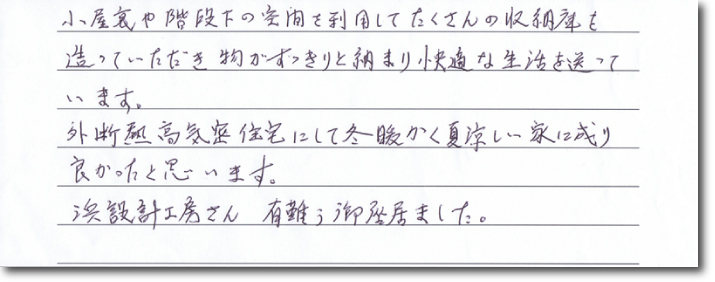 小屋裏や階段下の空間を利用してたくさんの収納庫も
造っていただき物がすっきりと納まり快適な生活を送って
います。
外断熱高気密住宅にして冬暖かく夏涼しい家に成り
良かったと思います。
浜設計工房さん 有難う御座居ました。